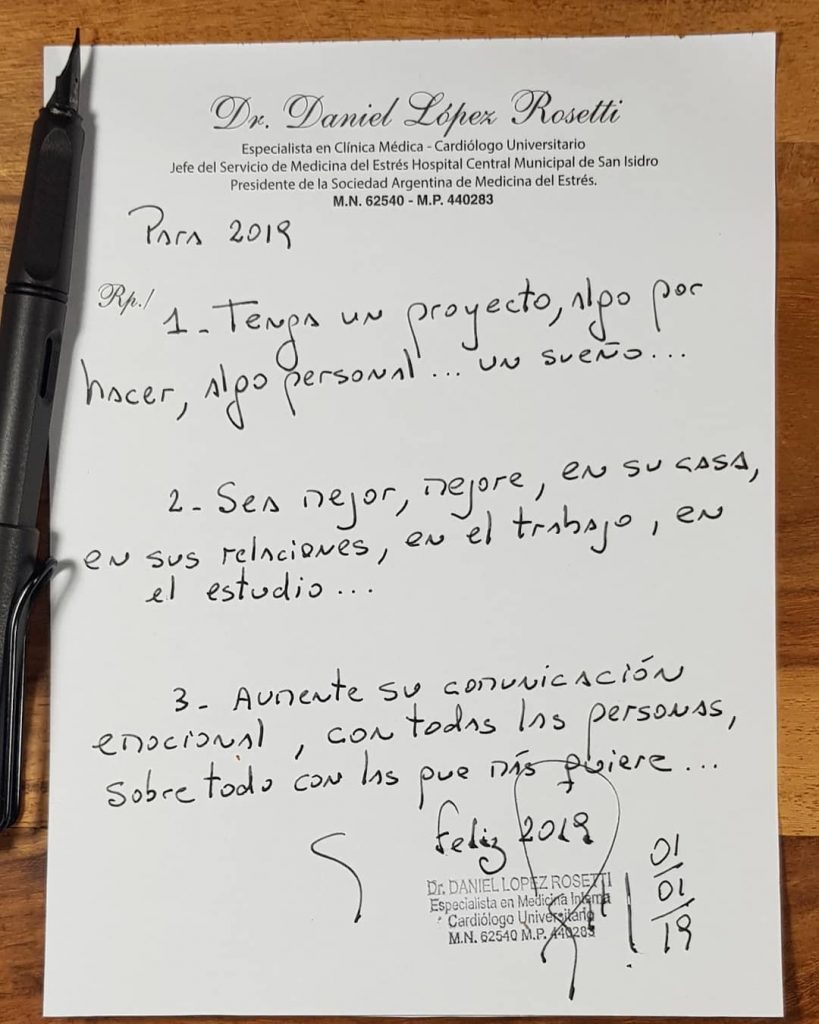 Dr. Daniel López Rosetti
Especialista en Clínica Médica - Cardiólogo Universitario
Jefe del Servicio de Medicina del Estrés Hospital Central Municipal de San Isidro
Presidente de la Sociedad Argentina de Medicina del Estrés.
M.N. 62540 - M.P. 440283
Para 2019
Rp./
1 - Tenga un proyecto, algo por
hacer, algo personal... un sueño...
2 - Sea mejor, mejore, en su casa,
en sus relaciones, en el trabajo, en
el estudio...
3 - Aumente su comunicación
emocional, con todas las personas,
sobre todo con las que más quiere...
Feliz 2019
Dr. DANIEL LOPEZ ROSETTI
Especialista en Medicina Interna
Cardiólogo Universitario
M.N. 62540 M.P. 440283
01
01
19